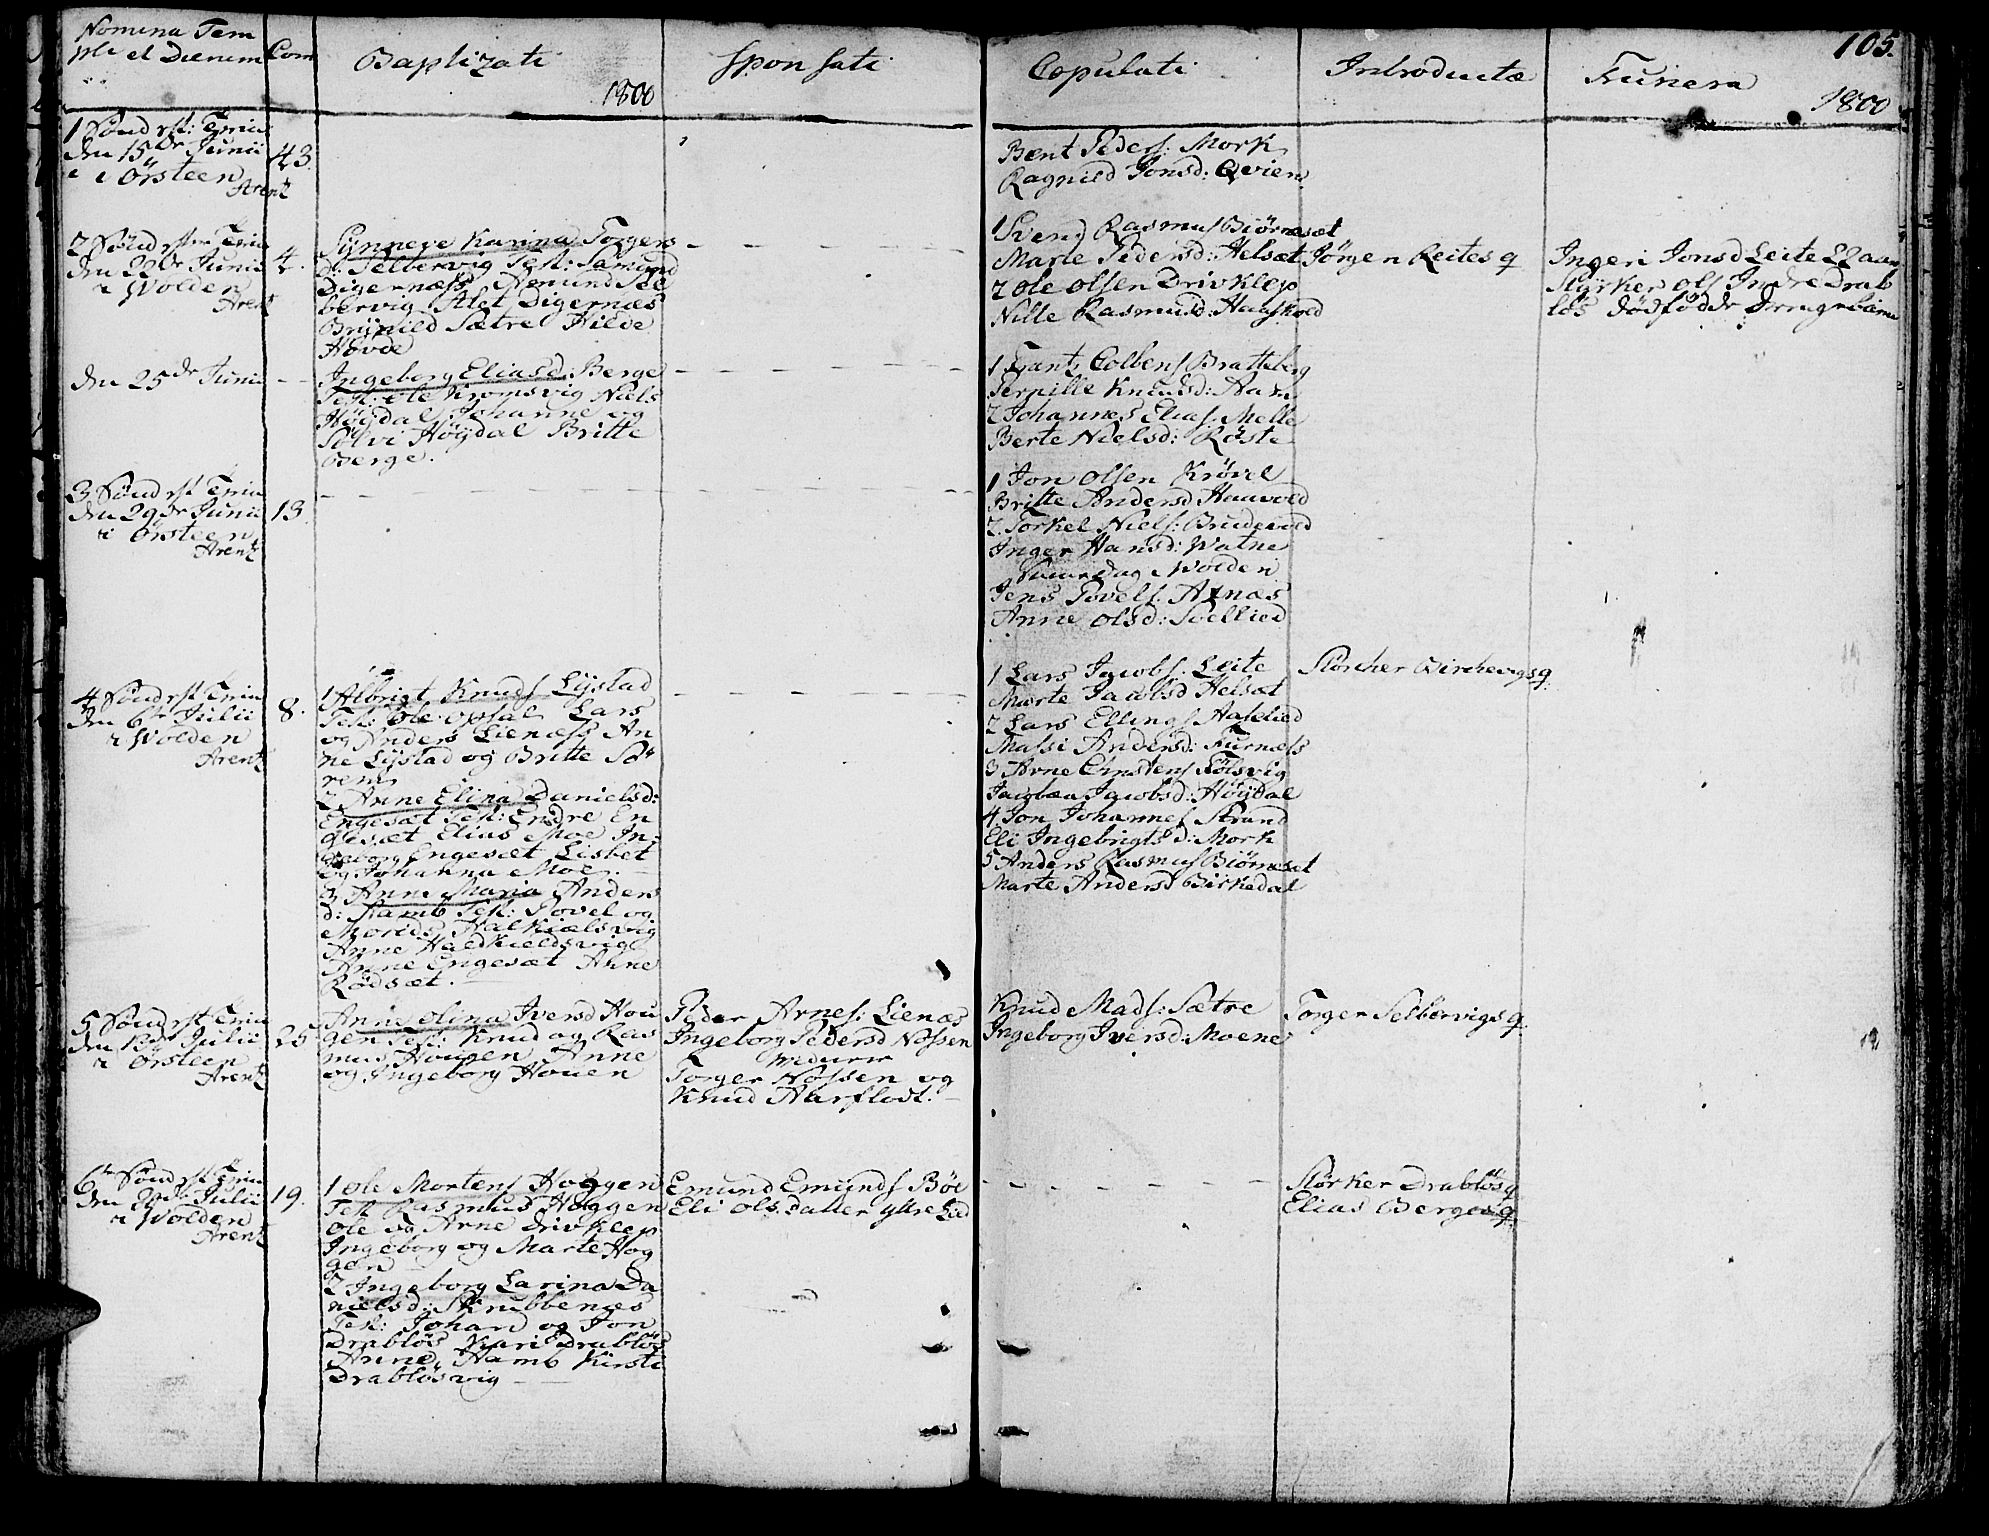 Nomina Tem
pli et Dierum
Com
Baptizati
1800
Sponsati
Copulati
Introductæ
Funera
105.
1800
1 Sönd: p: Trin:
den 15de Junii
i Örsteen
Arentz
43.
Bent Peders: Mork
Ragnild Jonsd: Qvien
2 Sönd Trin
den 22de Junii
i Wolden
Arentz
4.
Synneve Karina Torgers
d: Selbervig Test: Samund
Digernæss Amund Sel
bervig Alet Digernæs
Brynild Sætre Hilde
Hovde
1 Svend Rasmus Biørnæset
Marte Pedersd: Helsæt
2 Ole Olsen Drivklep
Nille Rasmusd: Haaskold
Jørgen Leites q
Ingeri Jonsd Leite
Styrker Ols Indre Drab
løs dødfødde Drengebarn
den 25de Junii
Ingeborg Eliasd: Berge
Test: Ole Kromsvig Niels
Høydal Johanne og
Sølvi Høydal Britte
Berge.
1 Frantz Colbens Bratteberg
Pernille Knudsd: Aam
2 Johannes Elias: Melle
Berte Nielsd: Røste
3 Sönd Trin
den 29de Junii
i Örsteen
Arentz
13.
1 Jon Olsen Krøvel
Britte Andersd Haavold
2. Torkel Niels: Brudevold
Inger Hansd: Watne
dag i Wolden
Jens Povels. Aanæs
Anne Olsd: Soellied
4 Sönd Trin
den 6te Julii
i Wolden
Arentz
8.
1 Albrigt Knuds Lystad
Test: Ole Opsal Lars
og Anders Lienæss An
ne Lystad og Britte Sö
rem
2 Anne Elina Danielsd:
Engesæt Test: Endre En
gesæt Elias Moe In
geborg Engesæt Lisbet
og Johanna Moe.
3 Anne Maria Anders
d: Hamb Test: Povel og
Morids Halkiælsvig
Anne Haldkieldsvig
Anne Engesæt Anne
Rødsæt.
1 Lars Jacobs. Leite
Marte Jacobsd Helsæt
2 Lars Ellings Aaslied
Massi Andersd: Furnæss
3 Arne Christens Følsvig
Jacobæa Jacobsd: Høydal
4 Jon Johannes Strand
Eli Ingebrigts d: Mork
5 Anders Rasmus Biørnæset
Marte Andersd Birkedal
Størcher Birchevigs q
5 Sönd Trin
den 13de Julii
i Örsteen
Arentz
25
Anne Olina Iversd Hou
gen Test: Knud og Ras
mus Hougen Anne
og Ingeborg Houen
Peder Arnes: Lienæs
Ingeborg Pedersd Nossen
Torger Nossen og
Knud Aarflodt.
Knud Mads: Sætre
Ingeborg Iversd: Moene
Torger Selbervigs q
6te Sönd Trin
den 20de Julii
i Wolden
Arentz
19.
1 Ole Mortens Hoggen
Test Rasmus Hoggen
Ole og Arne Drivklep
Ingeborg og Marte Hog
gen
2 Ingeborg Larina Da
nielsd: Skrubbenæs
Test: Johan og Jon
Drabløs Kari Drabløs
Anne Hamb Kirsti
Drabløsvig
Emund Emunds Böe
Eli Ols datter Ytre Lied
Størker Drabløs q
Elias Berges q